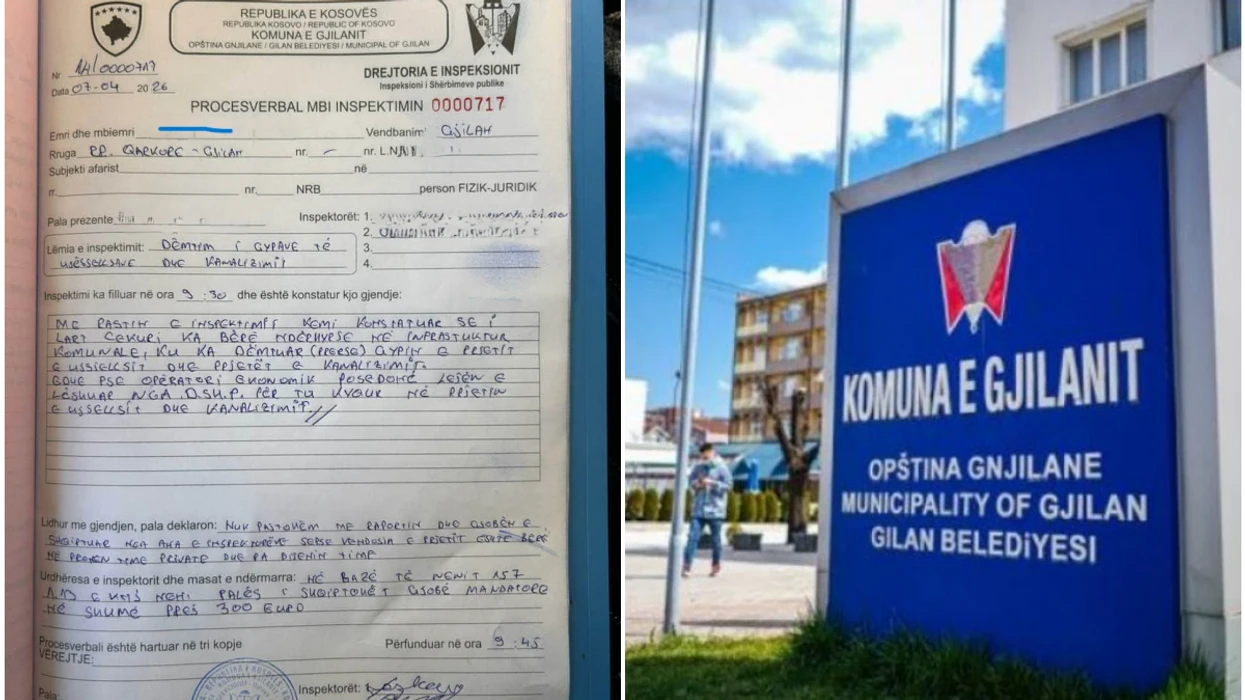 REPUBLIKA E KOSOVËS
REPUBLIKA KOSOVO / REPUBLIC OF KOSOVO
KOMUNA E GJILANIT
OPŠTINA GNJILANE / GILAN BELEDIYESI / MUNICIPAL OF GJILAN
Nr 14/0000717
Data 07-04 2026
DREJTORIA E INSPEKSIONIT
Inspeksioni i Shërbimeve publike
PROCESVERBAL MBI INSPEKTIMIN 0000717
Emri dhe mbiemri Vendbanim GJILAN
Rruga RR. QARKORE - GJILAN nr. - nr. L.NJ
Subjekti afarist në
rr. nr. NRB person FIZIK-JURIDIK
Pala prezente Inspektorët: 1.
2.
Lëmia e inspektimit: DËMTIM I GYPAVE TË 3.
UJËSJELLSAVE DHE KANALIZIMIT 4.
Inspektimi ka filluar në ora 9:30 dhe është konstatur kjo gjendje:
ME RASTIN E INSPEKTIMIT KEMI KONSTATUAR SE I
LART CEKURI KA BËRË NDËRHYRJE NË INFRASTUKTUR
KOMUNALE, KU KA DËMTUAR (PRERSE) GYPIN E RRJETIT
E UJSJELLSIT DHE RRJETËT E KANALIZIMIT.
EDHE PSE OPERATORI EKONOMIK POSEDONË LEJEN E
LËSHUAR NGA D.SH.P. PËR TU KYQUR NË RRJETIN
E UJSJELLSIT DHE KANALIZIMIT.//
Lidhur me gjendjen, pala deklaron: NUK PAJTOHEM ME RAPORTIN DHE GJOBËN E
SHQIPTUAR NGA ANA E INSPEKTORËVE SEPSE VENDOSJA E RRJETIT ËSHTË BËRË
NË PRONËN TIME PRIVATE DHE PA DIJENIN TIME
Urdhëresa e inspektorit dhe masat e ndërmarra: NË BAZË TË NENIT 157
E NENI PALËS I SHQIPTOHËT GJOBË MANDATORE
NË SHUMË PREJ 300 EURO
Procesverbali është hartuar në tri kopje Përfunduar në ora 9:45
VËREJTJE:
Pala: Inspektorët:
KOMUNA E GJILANIT
OPŠTINA GNJILANE
MUNICIPALITY OF GJILAN
GILAN BELEDİYESI